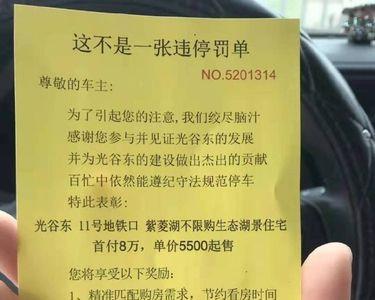 这不是一张违停罚单
NO.5201314
尊敬的车主：
为了引起您的注意，我们绞尽脑汁
感谢您参与并见证光谷东的发展
并为光谷东的建设做出杰出的贡献
百忙中依然能遵纪守法规范停车
特此表彰：
光谷东 11号地铁口 紫菱湖不限购生态湖景住宅
首付8万，单价5500起售
您将享受以下奖励：
1、精准匹配购房需求，节约看房时间